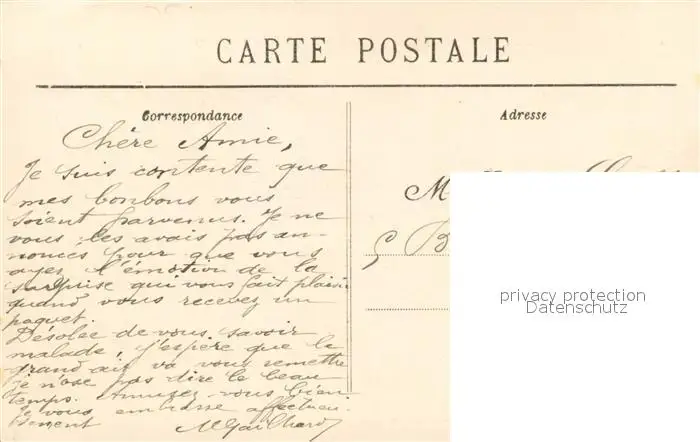 CARTE POSTALE
Correspondance
Adresse
Chère Amie,
Je suis contente que
mes bonbons vous
soient parvenus. Je ne
vous les avais pas an-
noncés pour que vous
ayez l'émotion de la
surprise qui vous fait plaisir
quand vous recevez un
paquet.
Désolée de vous savoir
malade, j'espère que le
grand air va vous remettre
je n'ose pas dire le beau
temps. Amusez-vous bien.
Je vous embrasse affectueu-
sement
M
B
privacy protection
Datenschutz